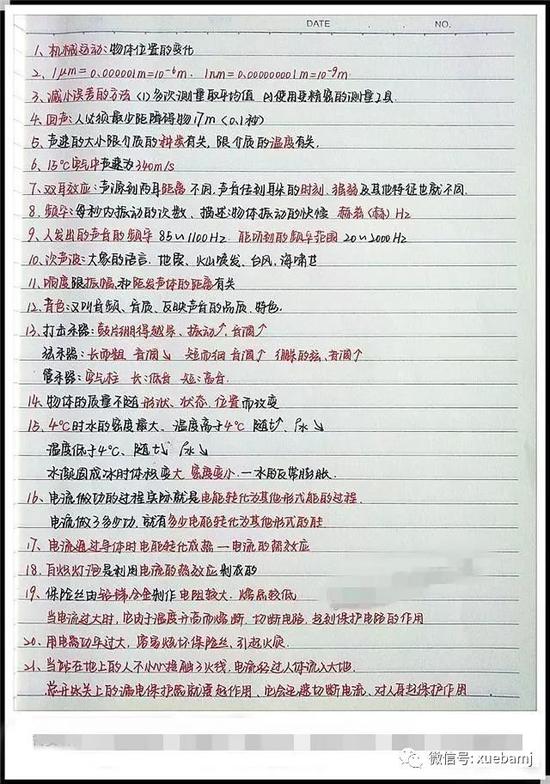 DATE NO.
1、机械运动:物体位置的变化
2、1μm=0.000001m=10⁻⁶m. 1nm=0.000000001m=10⁻⁹m.
3、减小误差的方法 (1)多次测量取平均值 (2)使用更精密的测量工具.
4、回声:人必须最少距障碍物17m (0.1秒)
5、声速的大小跟介质的种类有关, 跟介质的温度有关.
6、15℃空气中声速为340m/s
7、双耳效应:声源到两耳距离不同,声音传到耳朵的时刻、强弱及其他特征也就不同.
8、频率:每秒内振动的次数、描述物体振动的快慢 赫兹(赫) Hz
9、人发出的声音的频率 85~1100Hz. 能听到的频率范围 20~2000Hz
10、次声波:大象的语言、地震、火山喷发、台风、海啸
11、响度跟振幅和距发声体的距离有关
12、音色:又叫音频、音质、反映声音的品质、特色.
13、打击乐器:鼓片绷得越紧、振动↑,音调↑
弦乐器:长而粗 音调↓ 短而细 音调↑ 绷紧的弦、音调↑
管乐器:空气柱 长:低音 短:高音.
14、物体的质量不随形状、状态、位置而改变
15、4℃时水的密度最大、温度高于4℃ 随t↑、ρ水↓
温度低于4℃、随t↓ ρ水↓
水凝固成冰时体积变大 密度变小.—水的反常膨胀.
16、电流做功的过程实际就是电能转化为其他形式能的过程.
电流做了多少功,就有多少电能转化为其他形式的能
17、电流通过导体时电能转化成热—电流的热效应
18、白炽灯泡是利用电流的热效应制成的
19、保险丝由铅锑合金制作 电阻较大、熔点较低
当电流过大时,它由于温度升高而熔断、切断电路、起到保护电路的作用
20、用电器功率过大,容易烧坏保险丝、引起火灾
21、当站在地上的人不小心接触了火线,电流经过人体流入大地.
总开关上的漏电保护器就要起作用、它会迅速切断电流、对人身起保护作用.
微信号: xuebamj